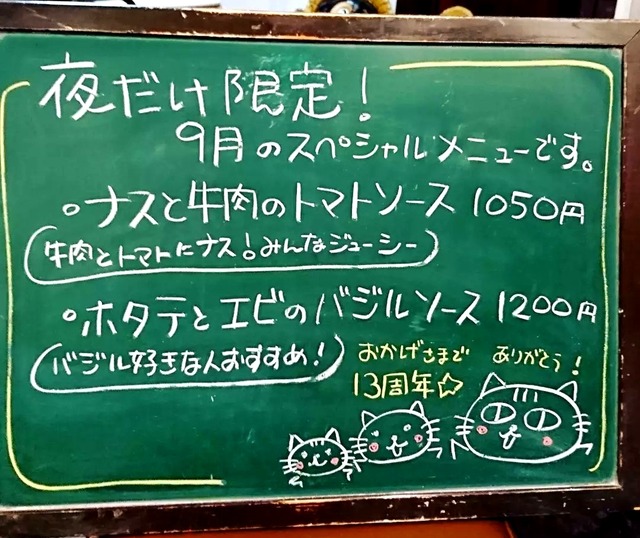 夜だけ限定！
9月のスペシャルメニューです。
○ナスと牛肉のトマトソース 1050円
牛肉とトマトにナス！みんなジューシー
○ホタテとエビのバジルソース 1200円
バジル好きな人おすすめ！
おかげさまで
13周年☆
ありがとう！